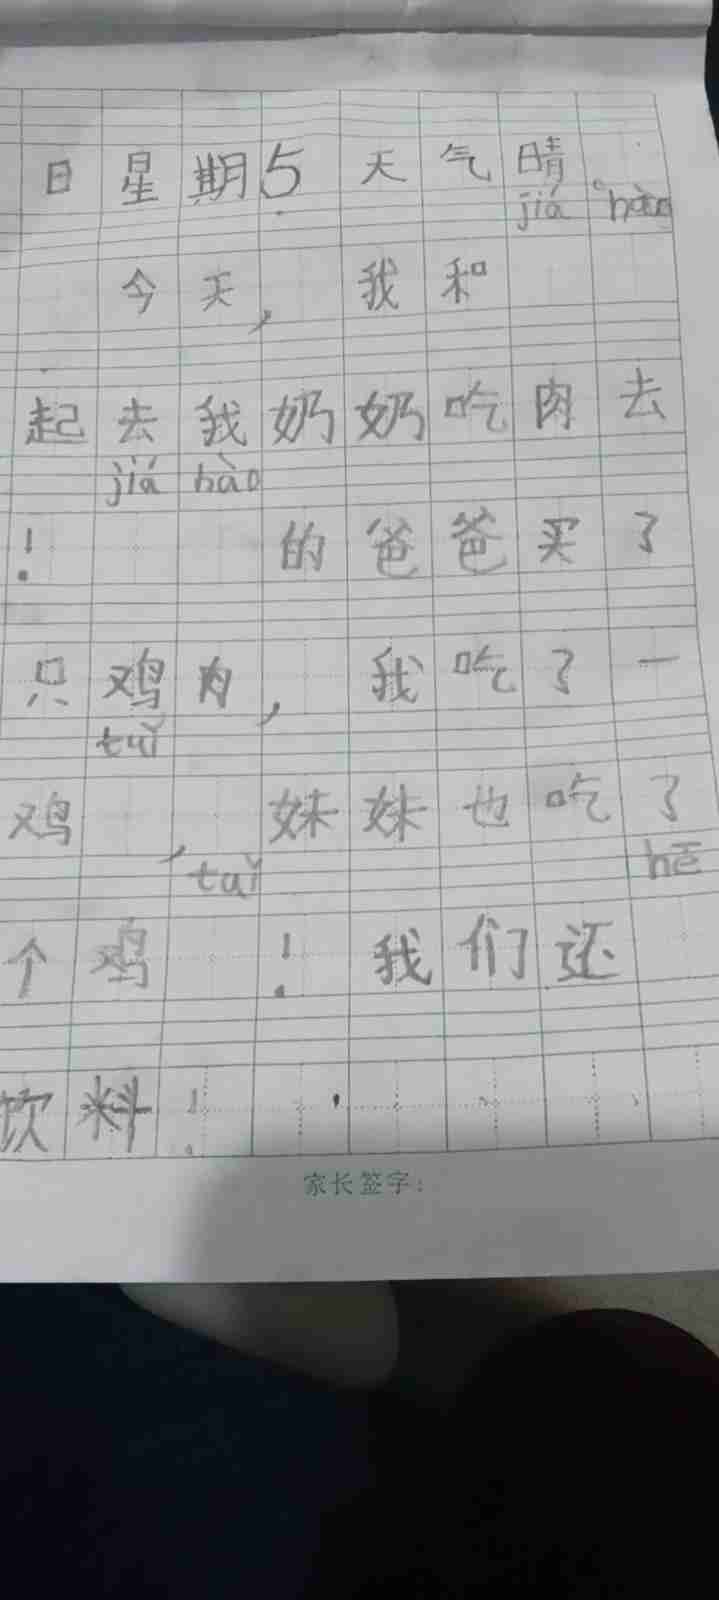 日星期5天气晴。
jiá hào
今天，我和
起去我奶奶吃肉去
jiá hào
！的爸爸买了
只鸡肉，我吃了一
tuǐ
鸡，妹妹也吃了
tuǐ hē
个鸡！我们还
饮料！
家长签字：